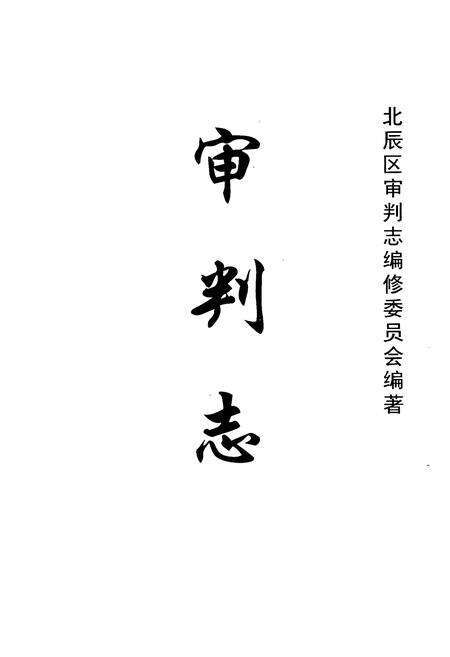 北辰区审判志编修委员会编著
审判志